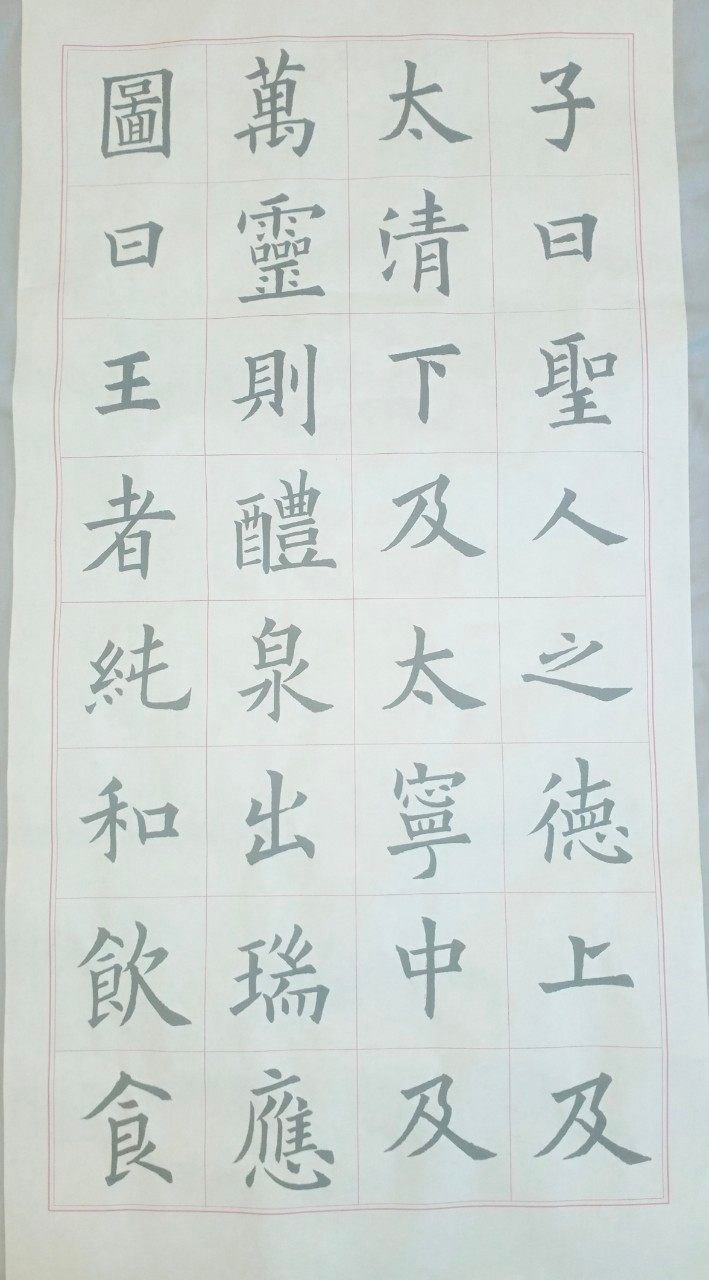 子曰聖人之德上及
太清下及太寧中及
萬靈則醴泉出瑞應
圖曰王者純和飲食